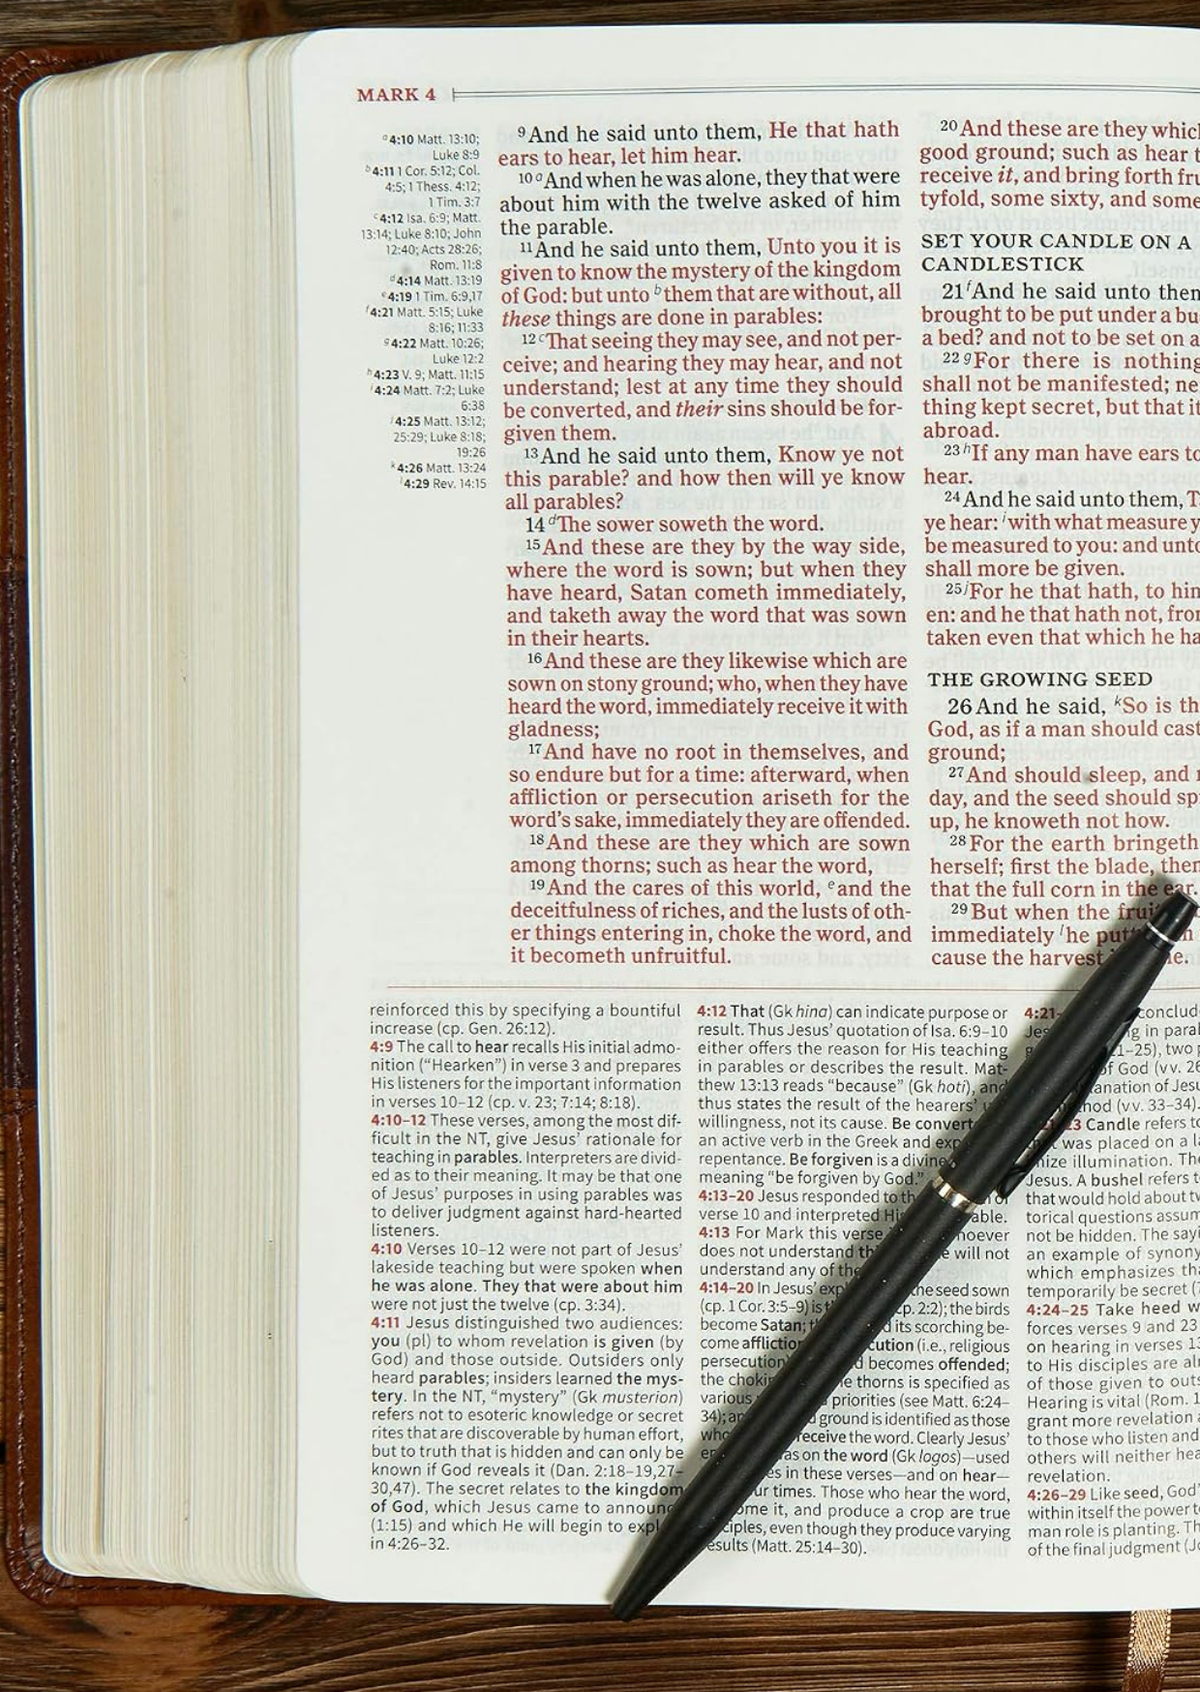 MARK 4
a 4:10 Matt. 13:10;
Luke 8:9
b 4:11 1 Cor. 5:12; Col.
4:5; 1 Thess. 4:12;
1 Tim. 3:7
c 4:12 Isa. 6:9; Matt.
13:14; Luke 8:10; John
12:40; Acts 28:26;
Rom. 11:8
d 4:14 Matt. 13:19
e 4:19 1 Tim. 6:9,17
f 4:21 Matt. 5:15; Luke
8:16; 11:33
g 4:22 Matt. 10:26;
Luke 12:2
h 4:23 V. 9; Matt. 11:15
i 4:24 Matt. 7:2; Luke
6:38
j 4:25 Matt. 13:12;
25:29; Luke 8:18;
19:26
k 4:26 Matt. 13:24
l 4:29 Rev. 14:15
9 And he said unto them, He that hath
ears to hear, let him hear.
10 a And when he was alone, they that were
about him with the twelve asked of him
the parable.
11 And he said unto them, Unto you it is
given to know the mystery of the kingdom
of God: but unto b them that are without, all
these things are done in parables:
12 c That seeing they may see, and not per-
ceive; and hearing they may hear, and not
understand; lest at any time they should
be converted, and their sins should be for-
given them.
13 And he said unto them, Know ye not
this parable? and how then will ye know
all parables?
14 d The sower soweth the word.
15 And these are they by the way side,
where the word is sown; but when they
have heard, Satan cometh immediately,
and taketh away the word that was sown
in their hearts.
16 And these are they likewise which are
sown on stony ground; who, when they have
heard the word, immediately receive it with
gladness;
17 And have no root in themselves, and
so endure but for a time: afterward, when
affliction or persecution ariseth for the
word's sake, immediately they are offended.
18 And these are they which are sown
among thorns; such as hear the word,
19 And the cares of this world, e and the
deceitfulness of riches, and the lusts of oth-
er things entering in, choke the word, and
it becometh unfruitful.
20 And these are they
good ground; such as hear
receive it, and bring forth
tyfold, some sixty, and some
SET YOUR CANDLE ON A
CANDLESTICK
21 f And he said unto
brought to be put under a
a bed? and not to be set on a
22 g For there is nothing
shall not be manifested;
thing kept secret, but that it
abroad.
23 h If any man have ears to
hear.
24 And he said unto them,
ye hear: i with what measure
be measured to you: and
shall more be given.
25 j For he that hath, to
en: and he that hath not,
taken even that which he
THE GROWING SEED
26 And he said, k So is
God, as if a man should cast
ground;
27 And should sleep, and
day, and the seed should
up, he knoweth not how.
28 For the earth bringeth
herself; first the blade, then
that the full corn in the ear.
29 But when the
immediately l he
cause the harvest
reinforced this by specifying a bountiful
increase (cp. Gen. 26:12).
4:9 The call to hear recalls His initial admo-
nition ("Hearken") in verse 3 and prepares
His listeners for the important information
in verses 10–12 (cp. v. 23; 7:14; 8:18).
4:10–12 These verses, among the most dif-
ficult in the NT, give Jesus' rationale for
teaching in parables. Interpreters are divid-
ed as to their meaning. It may be that one
of Jesus' purposes in using parables was
to deliver judgment against hard-hearted
listeners.
4:10 Verses 10–12 were not part of Jesus'
lakeside teaching but were spoken when
he was alone. They that were about him
were not just the twelve (cp. 3:34).
4:11 Jesus distinguished two audiences:
you (pl) to whom revelation is given (by
God) and those outside. Outsiders only
heard parables; insiders learned the mys-
tery. In the NT, "mystery" (Gk musterion)
refers not to esoteric knowledge or secret
rites that are discoverable by human effort,
but to truth that is hidden and can only be
known if God reveals it (Dan. 2:18–19,27–
30,47). The secret relates to the kingdom
of God, which Jesus came to
(1:15) and which He will begin to
in 4:26–32.
4:12 That (Gk hina) can indicate purpose or
result. Thus Jesus' quotation of Isa. 6:9–10
either offers the reason for His teaching
in parables or describes the result. Mat-
thew 13:13 reads "because" (Gk hoti), and
thus states the result of the hearers'
willingness, not its cause. Be
an active verb in the Greek and
repentance. Be forgiven is a divine
meaning "be forgiven by God."
4:13–20 Jesus responded to
verse 10 and interpreted
4:13 For Mark this verse
does not understand will not
understand any of
4:14–20 In Jesus' the seed sown
(cp. 1 Cor. 3:5–9) cp. 2:2); the birds
become Satan; its scorching be-
come (i.e., religious
persecution) becomes offended;
the thorns is specified as
various priorities (see Matt. 6:24–
34); ground is identified as those
receive the word. Clearly Jesus'
on the word (Gk logos)—used
in these verses—and on hear—
times. Those who hear the word,
it, and produce a crop are true
even though they produce varying
(Matt. 25:14–30).
in
two
of God (vv.
of
(vv. 33–34).
Candle refers to
was placed on a
illumination.
Jesus. A bushel refers
that would hold about
torical questions
not be hidden. The
an example of
which emphasizes
temporarily be secret
4:24–25 Take heed
forces verses 9 and 23
on hearing in verses
to His disciples are
of those given to
Hearing is vital (Rom.
grant more revelation
to those who listen and
others will neither
revelation.
4:26–29 Like seed, God's
within itself the power
man role is planting.
of the final judgment